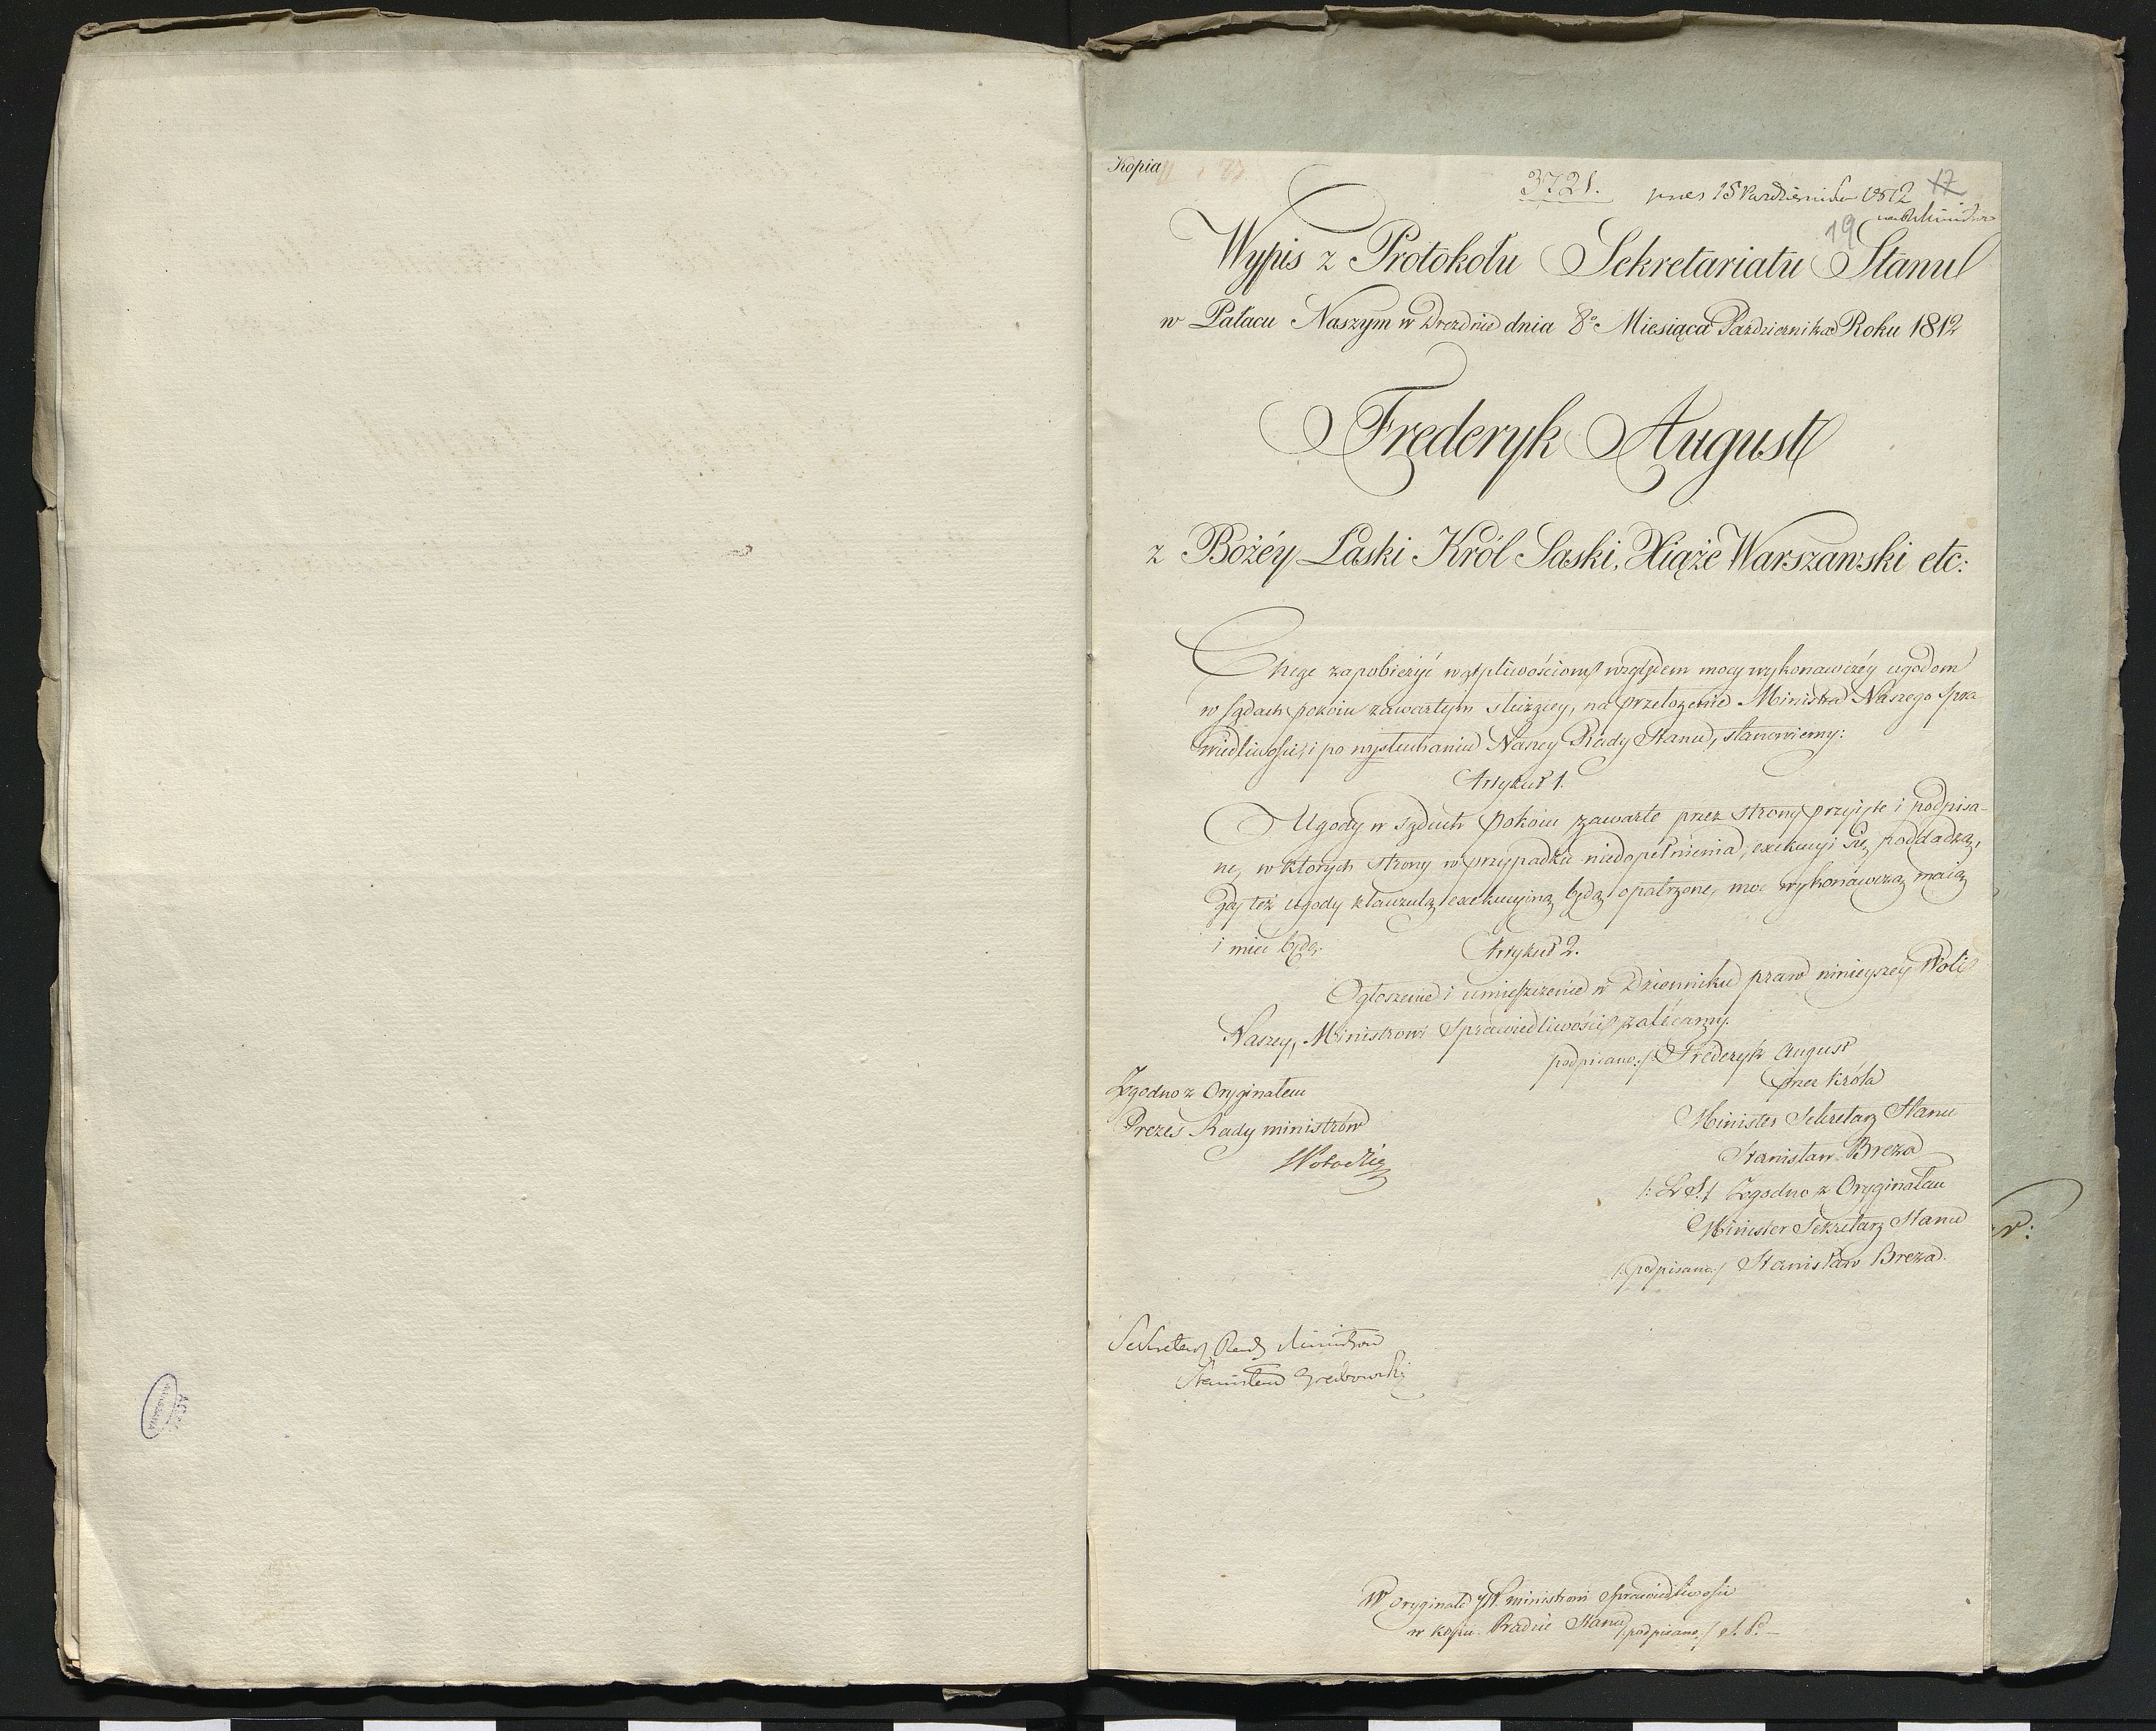 Kopia
3721. pnes 15 Październik 1812 17
19
Wypis z Protokołu Sekretariatu Stanu
w Pałacu Naszym w Dreznie dnia 8º Miesiąca Pazdziernika Roku 1812
Frederyk August
z Bożéy Łaski Król Saski, Xiąże Warszawski etc:
Chcąc zapobieżyć wątpliwościom względem mocy wykonawczéy ugodom
w sądach pokoiu zawartym służącey, na przełożenie Ministra Naszego Spra
wiedliwości, i po wysłuchaniu Naszey Rady Stanu, stanowiemy:
Artykuł 1.
Ugody w sądach Pokoiu zawarte przez strony przyięte i podpisa-
ne, w których strony w przypadku niedopełnienia, exekucyi się poddadzą,
gdy też ugody klauzulą exekucyiną będą opatrzone, moc wykonawczą maią
i mieć będą.
Artykuł 2.
Ogłoszenie i umieszczenie w Dzienniku praw ninieyszey Woli
Naszey, Ministrowi Sprawiedliwości zalécamy.
podpisano:/ Frederyk August
przez Króla
Minister Sekretarz Stanu
Stanisław Breza
/: L. S. / Zgodno z Oryginałem
Minister Sekretarz Stanu
/: podpisano:/ Stanisław Breza.
Zgodno z Oryginałem
Prezes Rady ministrów
Sekretarz Rady Ministrów
Stanisław Grabowski
W oryginale JW. ministrowi Sprawiedliwości
w kopii Radzie Stanu /podpisano:/ S. P. –